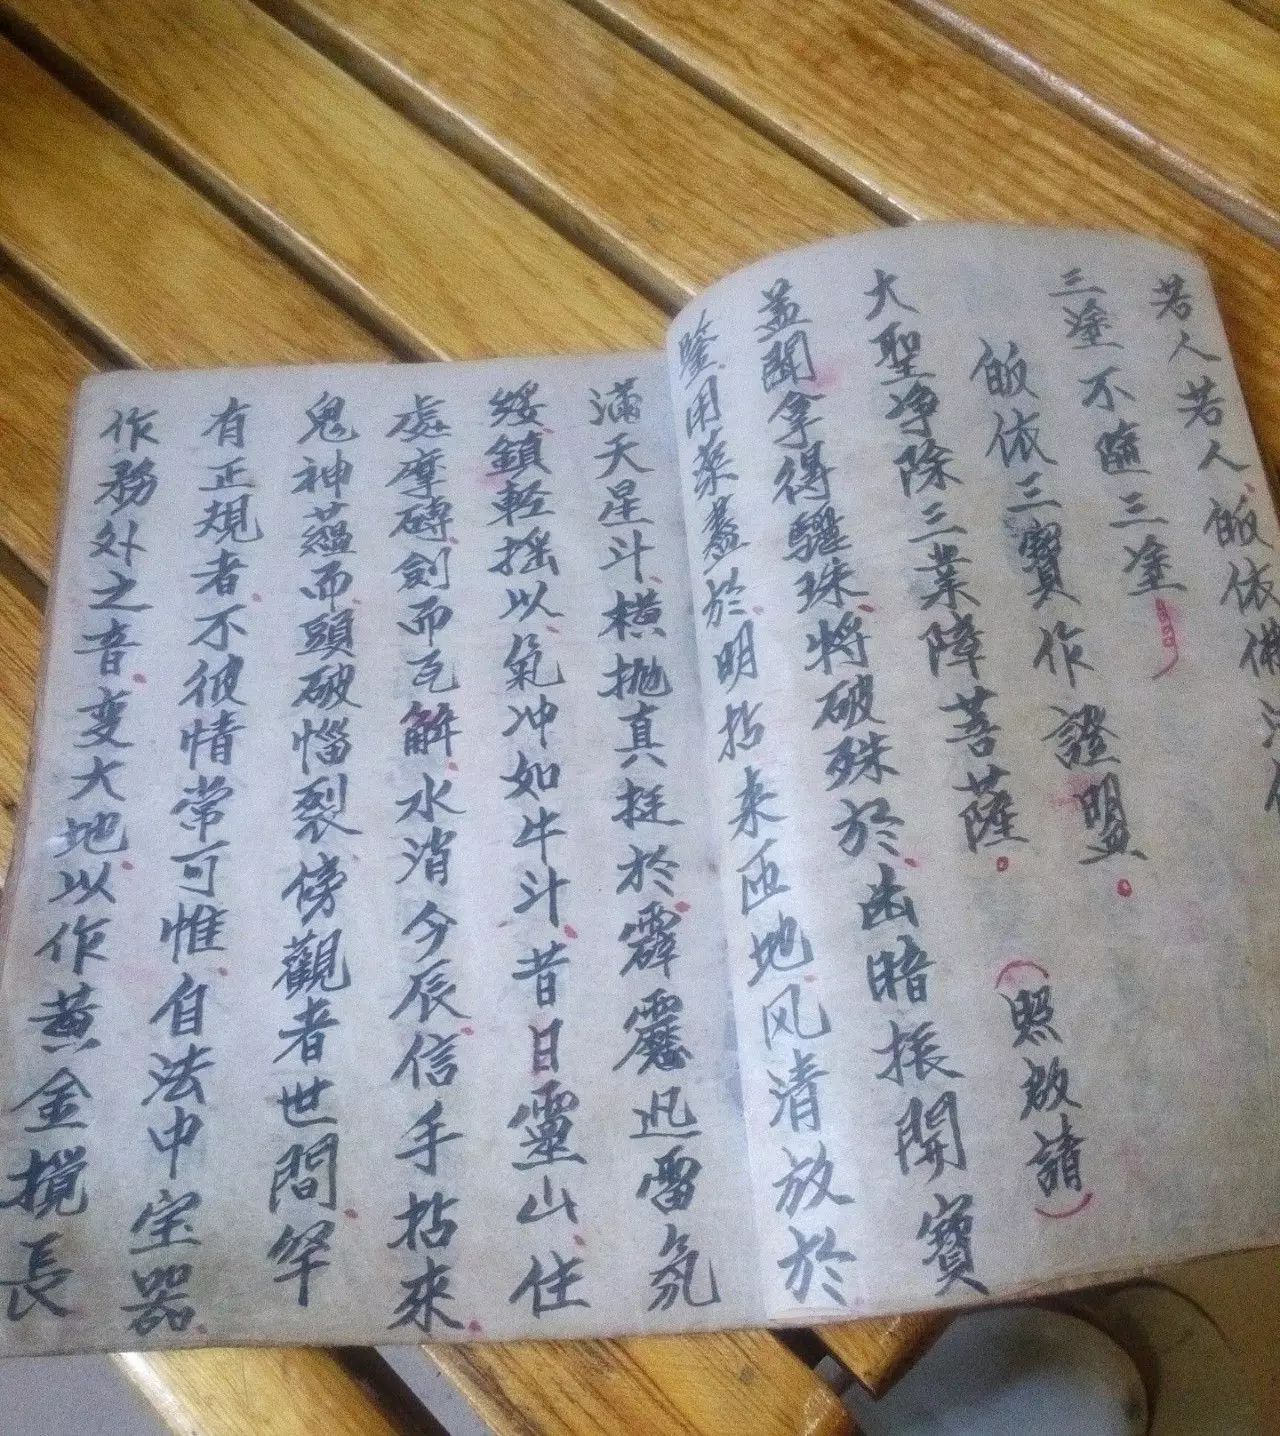 若人若人皈依佛
三塗不隨三塗
皈依三寶作證盟
大聖净除三業障菩薩 照啟請
盖聞拿得驪珠將破殊於幽暗振開寶
鑒用 盡於明拈来匝地风清放於
滿天星斗橫抛真挺於霹靂迅雷氛
綏鎖輕搖以氣冲如牛斗昔日靈山住
處摩磚劍而瓦解水消今辰信手拈來
鬼神藴而頭破惱裂傍觀者世間罕
有正規者不彼情常可惟自法中宝器
作務外之音变大地以作黄金攪長